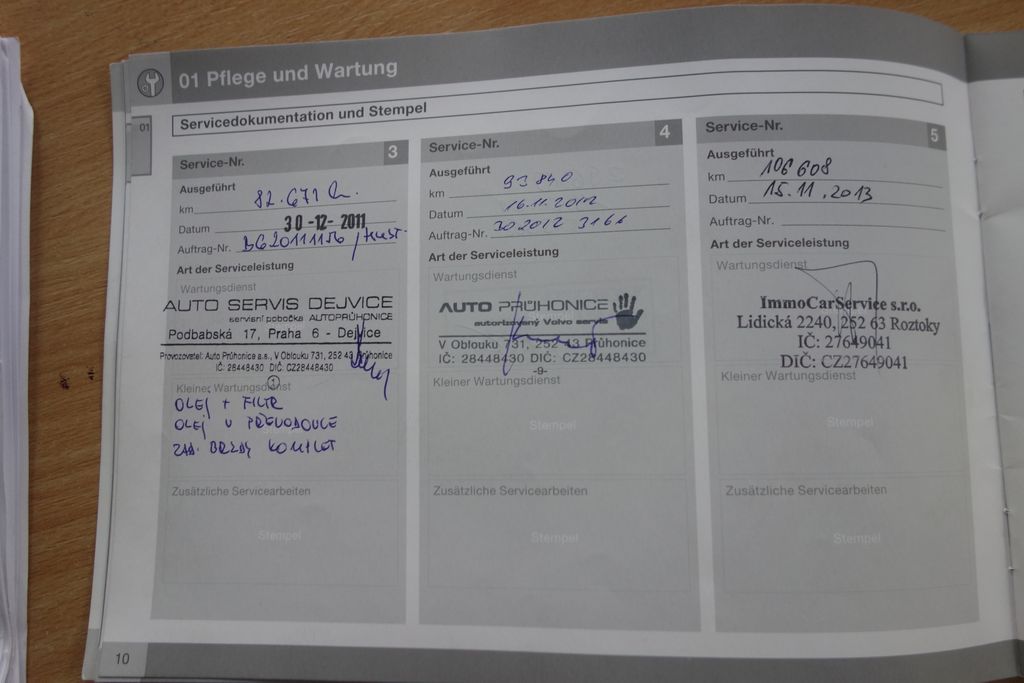 01 Pflege und Wartung
01
Servicedokumentation und Stempel
Service-Nr. 3
Ausgeführt
km 82.671
Datum 30-12-2011
Auftrag-Nr.
Art der Serviceleistung
Wartungsdienst
AUTO SERVIS DEJVICE
servisní pobočka AUTOPRŮHONICE
Podbabská 17, Praha 6 - Dejvice
Provozovatel: Auto Průhonice a.s., V Oblouku 731, 252 43 Průhonice
IČ: 28448430 DIČ: CZ28448430
1
Kleiner Wartungsdienst
OLEJ + FILTR
OLEJ V PŘEVODOVCE
ZAD. BRZDY KOMPLET
Zusätzliche Servicearbeiten
Stempel
Service-Nr. 4
Ausgeführt
km 93 840
Datum 16.11.2012
Auftrag-Nr. 302012 3161
Art der Serviceleistung
Wartungsdienst
AUTO PRŮHONICE
autorizovaný Volvo servis
V Oblouku 731, 252 43 Průhonice
IČ: 28448430 DIČ: CZ28448430
-9-
Kleiner Wartungsdienst
Stempel
Zusätzliche Servicearbeiten
Stempel
Service-Nr. 5
Ausgeführt
km 106 608
Datum 15.11.2013
Auftrag-Nr.
Art der Serviceleistung
Wartungsdienst
ImmoCarService s.r.o.
Lidická 2240, 252 63 Roztoky
IČ: 27649041
DIČ: CZ27649041
Kleiner Wartungsdienst
Stempel
Zusätzliche Servicearbeiten
Stempel
10